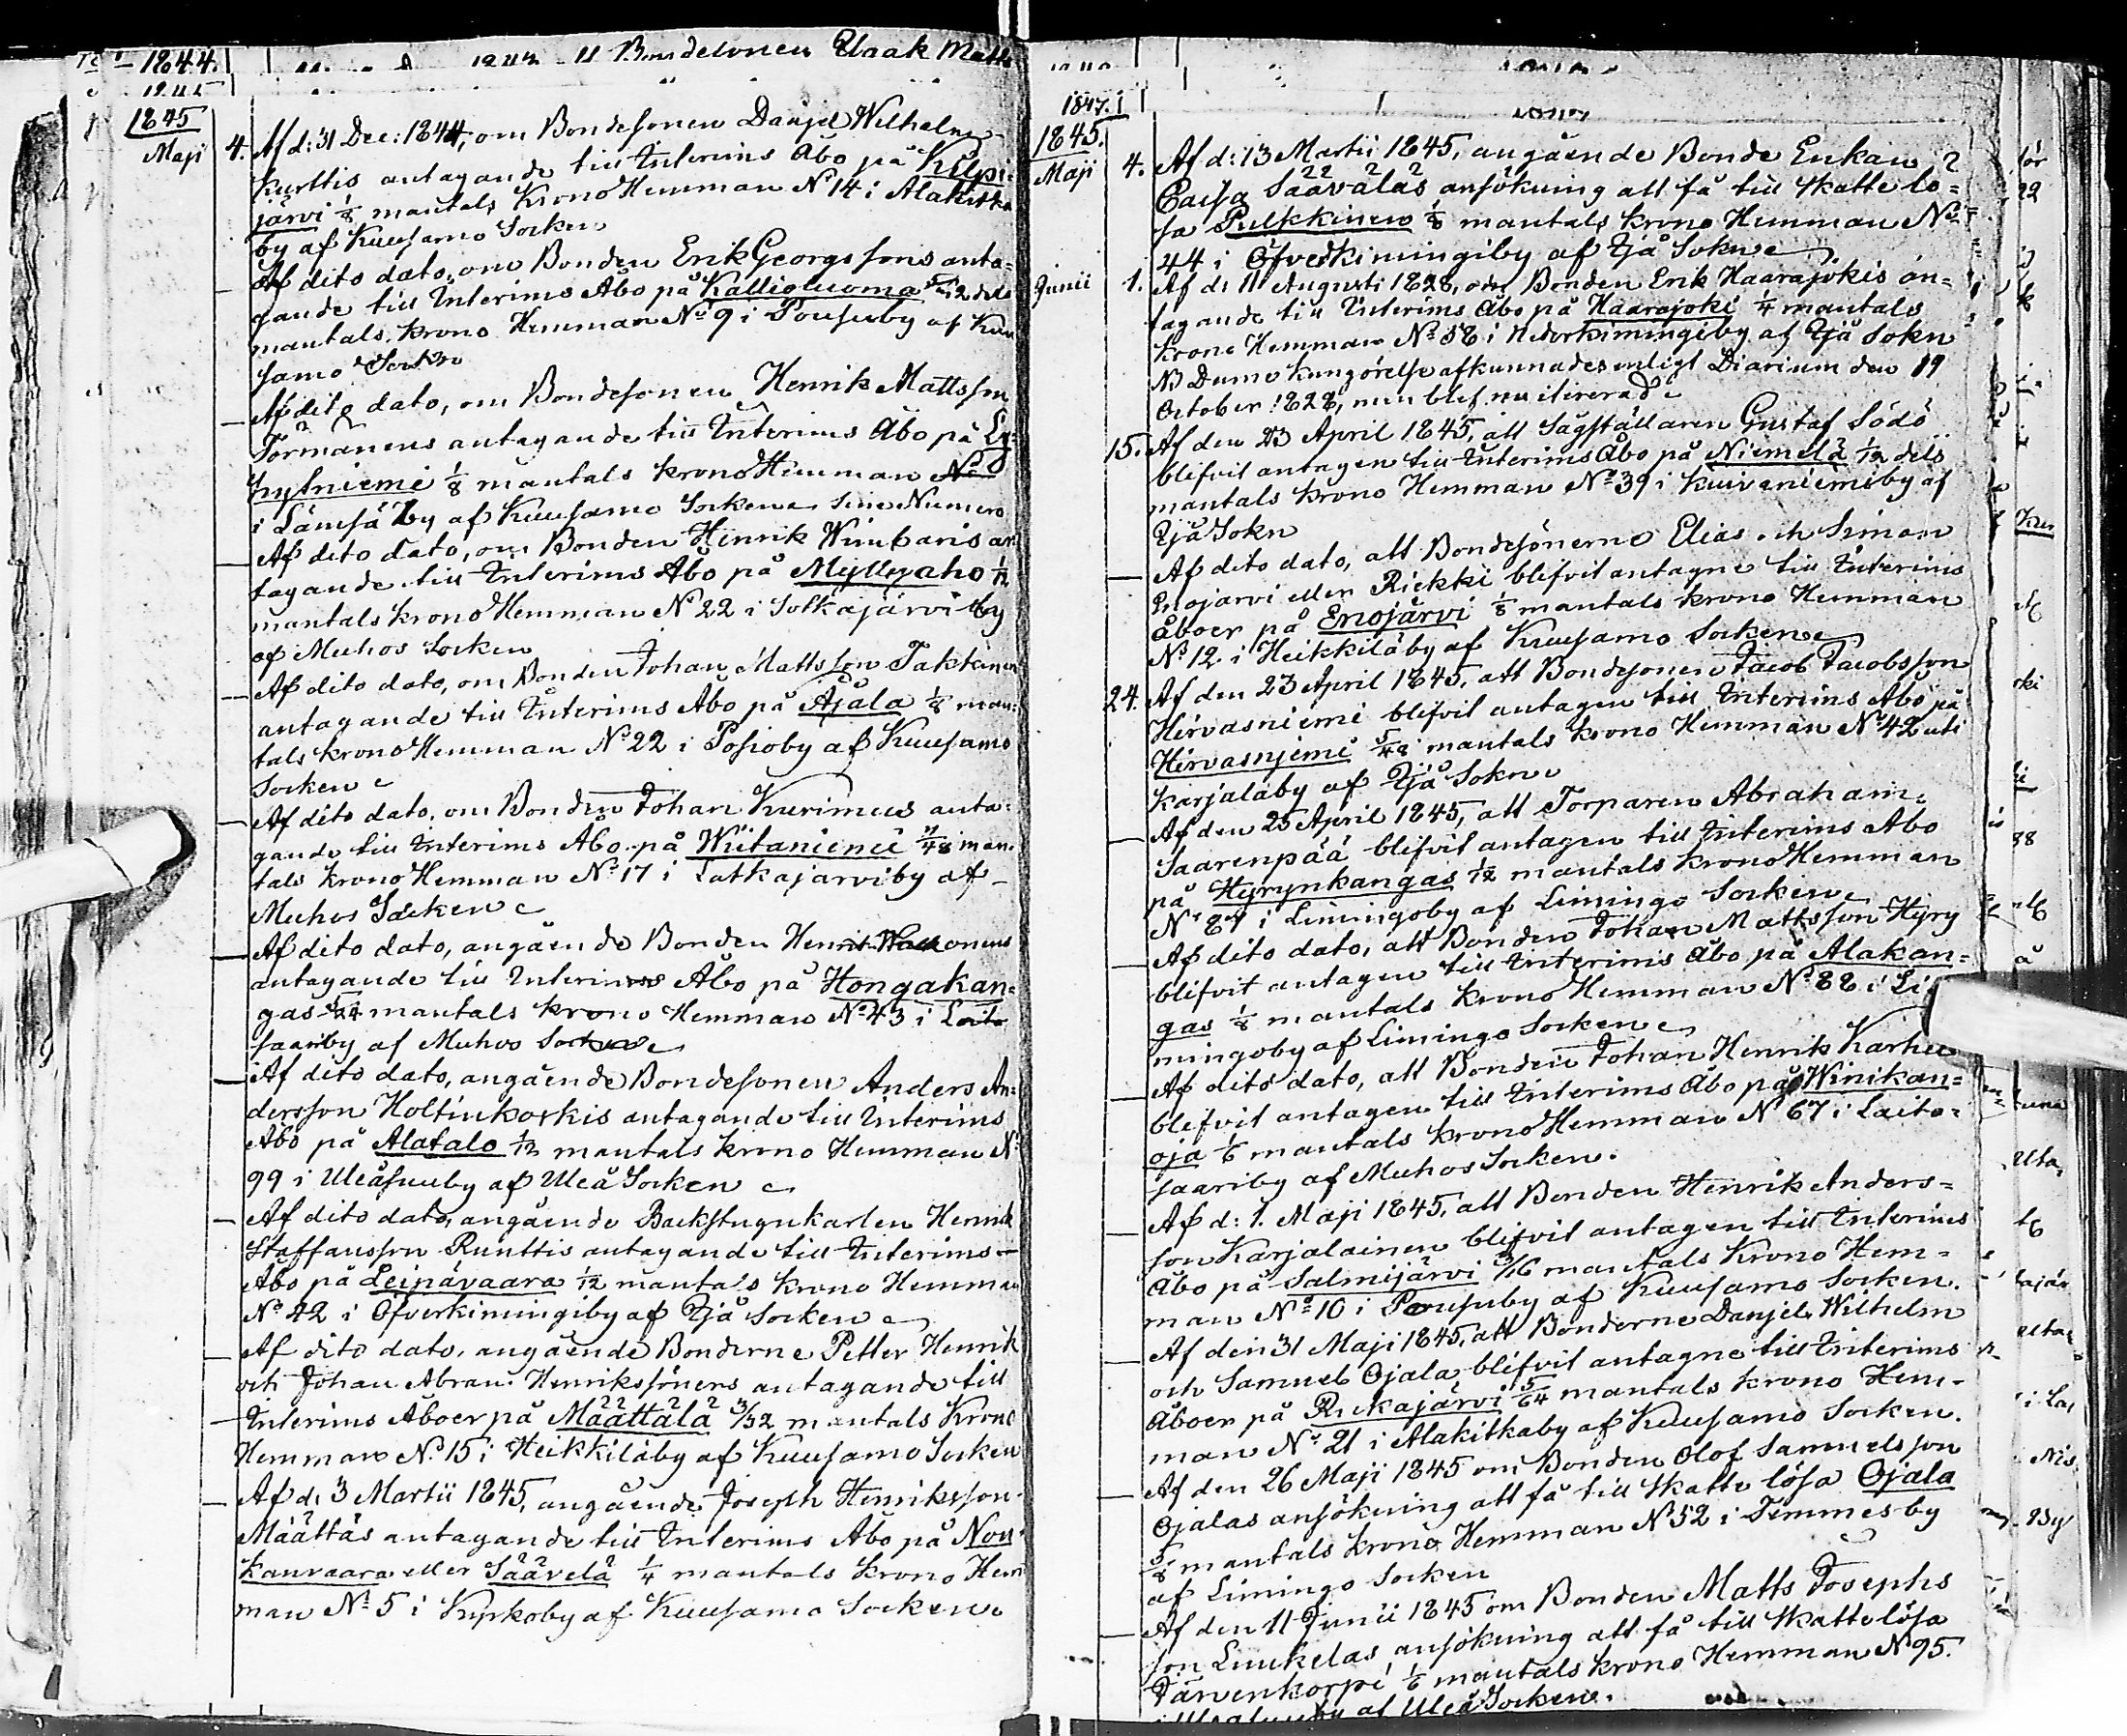 1844.
Bondesonen Isaak Matts
1845
Maji
4. Af d: 31 Dec: 1844, om Bondesonen Danjel Wilhelm
Kurttis antagande till Interims Åbo på Kilpi-
järvi 1/8 mantals Krono Hemman No 14 i Alakitka
by af Kuusamo Socken
— Af dito dato, om Bonden Erik Georgssons anta-
gande till Interims Åbo på Kallioluoma 5/12 dels
mantals krono Hemman No 9 i Poususby af Kuu
samo Socken
— Af dito dato, om Bondesonen Henrik Mattsson
Törmänens antagande till Interims Åbo på Ly-
hytniemi 1/8 mantals krono Hemman No 0
i Lämsä by af Kuusamo Socken sine Numero
— Af dito dato, om Bonden Hinrik Wimparis an
tagande till Interims Åbo på Myllyaho 1/12
mantals krono Hemman No 22 i Sotkajärvi by
af Muhos Socken
— Af dito dato, om Bonden Johan Mattsson Takkinen
antagande till Interims Åbo på Ajala 1/8 man-
tals krono Hemman No 22 i Posioby af Kuusamo
Socken
— Af dito dato, om Bonden Johan Kurimus anta-
gande till Interims Åbo på Wiitaniemi /48 man-
tals Krono Hemman No 17 i Latkajarviby af
Muhos Socken
— Af dito dato, angående Bonden Henrik onens
antagande till Interims Åbo på Hongakan-
gas 5/24 mantals krono Hemman No 43 i Laito
saariby af Muhos Socken
— Af dito dato, angående Bondesonen Anders An-
dersson Holtinkoskis antagande till Interims
Åbo på Alatalo 1/12 mantals krono Hemman No
99 i Uleåsuuby af Uleå Socken
— Af dito dato, angående Backstugukarlen Henrik
Staffansson Runttis antagande till Interims-
Åbo på Leipävaara 1/12 mantals krono Hemman
No 42 i Öfverkimingiby af Ijå Socken
— Af dito dato, angående Bönderne Petter Henrik
och Johan Abram Henrikssöners antagande till
Interims Åboer på Määttälä 3/32 mantals Krono
Hemman No 15 i Heikkiläby af Kuusamo Socken
— Af d: 3 Martii 1845, angående Joseph Henriksson
Määttäs antagande till Interims Åbo på Nou-
kanvaara eller Säävelä 1/4 mantals Krono Hem
man No 5 i Kipkoby af Kuusamo Socken.
1847.
1845.
Maji
4. Af d: 13 Martii 1845, angående Bonde Enkan
Caisa Säävälas ansökning att få till skatte lö-
sa Pulkkinen 1/8 mantals krono Hemman No
44 i Öfverkimingiby af Ijå Sokn
Junii
1. Af d: 11 Augusti 1828, om Bonden Erik Haarajokis an-
tagande till Interims Åbo på Haarajoki 1/4 mantals
krono Hemman No 58 i Nederkimingiby af Ijå Sokn
NB Denne kungörelse afkunnades enligt Diarium den 19
October 1828, men blef nu itirerad
15. Af den 23 April 1845, att Sågställaren Gustaf Södö
blifvit antagen till Interims Åbo på Niemelä 1/12 dels
mantals krono Hemman No 39 i Kuivaniemiby af
Ijå Sokn
— Af dito dato, att Bondesönerne Elias och Simon
Enojarvi eller Riekki blifvit antagne till Interims
åboer på Enojärvi 1/8 mantals krono Hemman
No 12 i Heikkiläby af Kuusamo Socken
24. Af den 23 April 1845, att Bondesonen Jacob Jacobsson
Hirvasniemi blifvit antagen till Interims Åbo på
Hirvasniemi 5/48 mantals krono Hemman No 42 uti
Karjalaby af Ijå Sokn
— Af den 25 April 1845, att Torparen Abraham
Saarenpää blifvit antagen till Interims Åbo
på Hyrynkangas 1/12 mantals krono Hemman
No 87 i Limingoby af Limingo Socken
— Af dito dato, att Bonden Johan Mattsson Hyry
blifvit antagen till Interims Åbo på Alakan-
gas 1/8 mantals krono Hemman No 88 i Li
mingoby af Limingo Socken
— Af dito dato, att Bonden Johan Henrik Karhu
blifvit antagen till Interims Åbo på Winikan-
oja 1/6 mantals krono Hemman No 67 i Laito-
saariby af Muhos Socken.
— Af d: 1. Maji 1845, att Bonden Henrik Anders-
son Karjalainen blifvit antagen till Interims
Åbo på Salmijärvi 3/16 mantals Krono Hem-
man No 10 i Pousuby af Kuusamo Socken.
— Af den 31 Maji 1845, att Bönderne Danjel Wilhelm
och Samuel Ojala blifvit antagne till Interims
Åboer på Rukajärvi 5/64 mantals krono Hem-
man No 21 i Alakitkaby af Kuusamo Socken.
— Af den 26 Maji 1845 om Bonden Olof Samuelsson
Ojalas ansökning att få till skatte lösa Ojala
5/8 mantals krono Hemman No 52 i Temmesby
af Limingo Socken
— Af den 11 Junii 1845 om Bonden Matts Josephs
son Luukelas ansökning att få till skatte lösa
Järvenkorpi 1/6 mantals krono Hemman No 95.
af Uleå Socken.